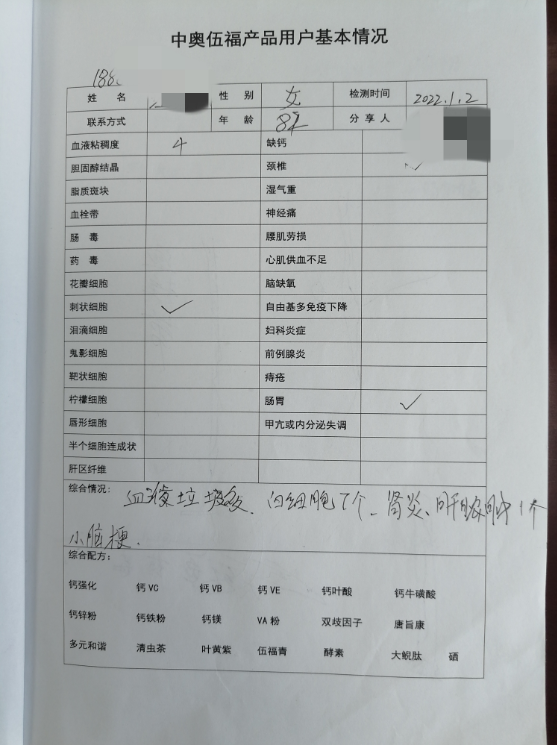 中奥伍福产品用户基本情况
姓 名 性 别 女 检测时间 2022.1.2
联系方式 年 龄 82 分 享 人
血液粘稠度 4 缺钙
胆固醇结晶 颈椎 ✓
脂质斑块 湿气重
血栓带 神经痛
肠 毒 腰肌劳损
药 毒 心肌供血不足
花瓣细胞 脑缺氧
刺状细胞 ✓ 自由基多免疫下降
泪滴细胞 妇科炎症
鬼影细胞 前例腺炎
靶状细胞 痔疮
柠檬细胞 肠胃 ✓
唇形细胞 甲亢或内分泌失调
半个细胞连成状
肝区纤维
综合情况: 血液垃圾多、白细胞7个、肾炎、肝
小脑梗.
综合配方:
钙强化 钙VC 钙VB 钙VE 钙叶酸 钙牛磺酸
钙锌粉 钙铁粉 钙镁 VA粉 双歧因子 唐旨康
多元和谐 清虫茶 叶黄紫 伍福青 酵素 大鲵肽 硒